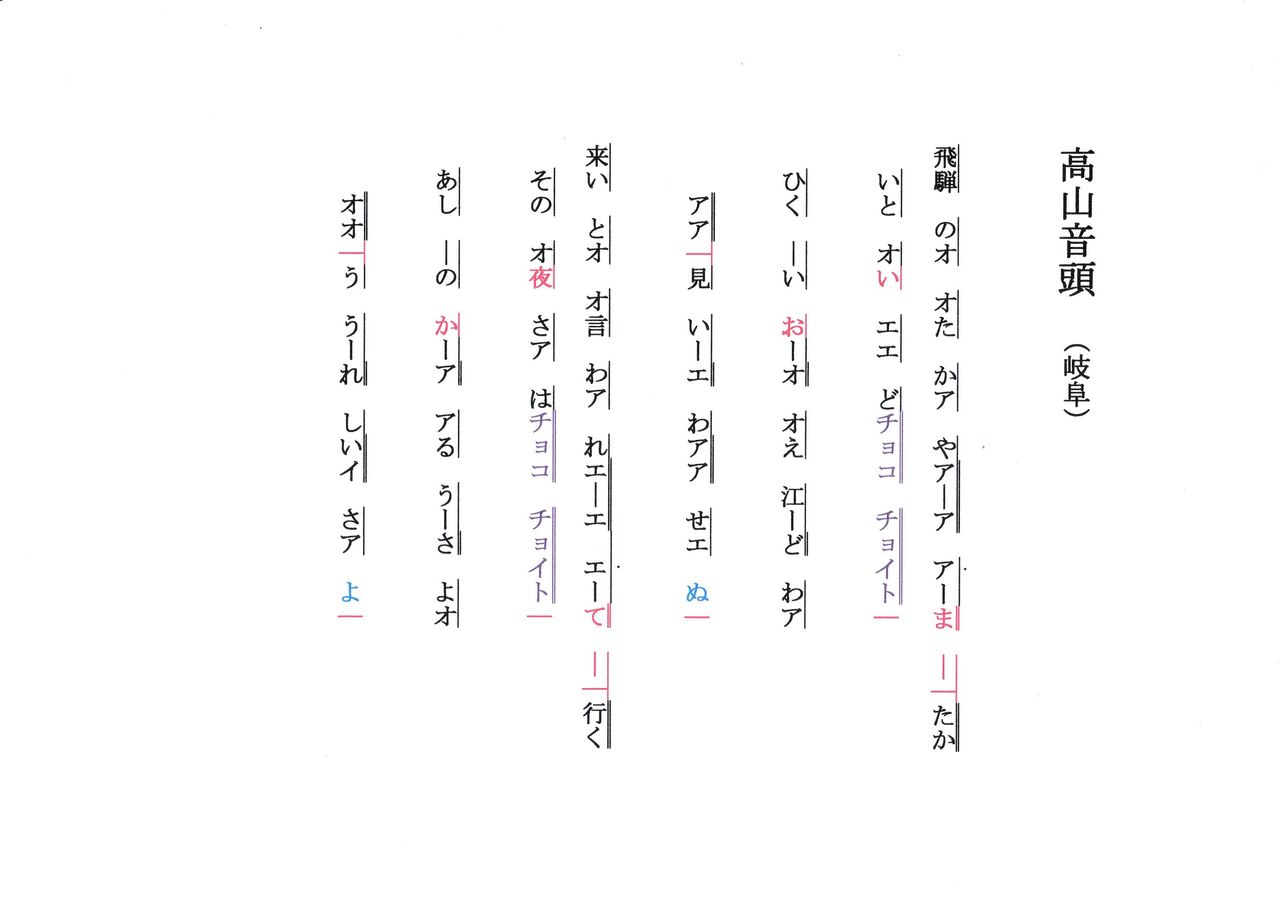 高山音頭 （岐阜）
飛騨 のオ オた かア やアーア アーま ー｜たか
いと オい エエ どチョコ チョイト｜
ひく ーい おーオ オえ 江ーど わア
アア｜見 いーエ わアア せエ ぬ｜
来い とオ オ言 わア れエーエ エーて ー｜行く
その オ夜 さア はチョコ チョイト｜
あし ーの かーア アる うーさ よオ
オオ｜う うーれ しいイ さア よ｜